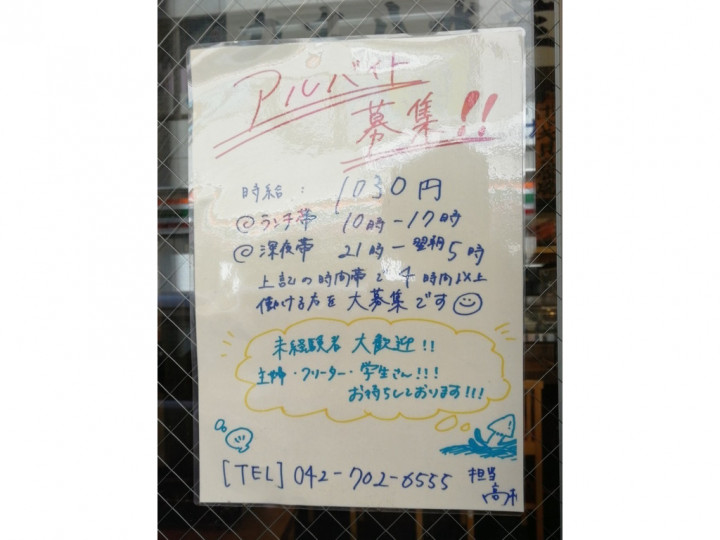 アルバイト
募集!!
時給: 1030円
@ランチ帯 10時-17時
@深夜帯 21時-翌朝5時
上記の時間帯で4時間以上
働ける方を大募集です
未経験者 大歓迎!!
主婦・フリーター・学生さん!!!
お待ちしております!!!
[TEL] 042-702-6555 担当